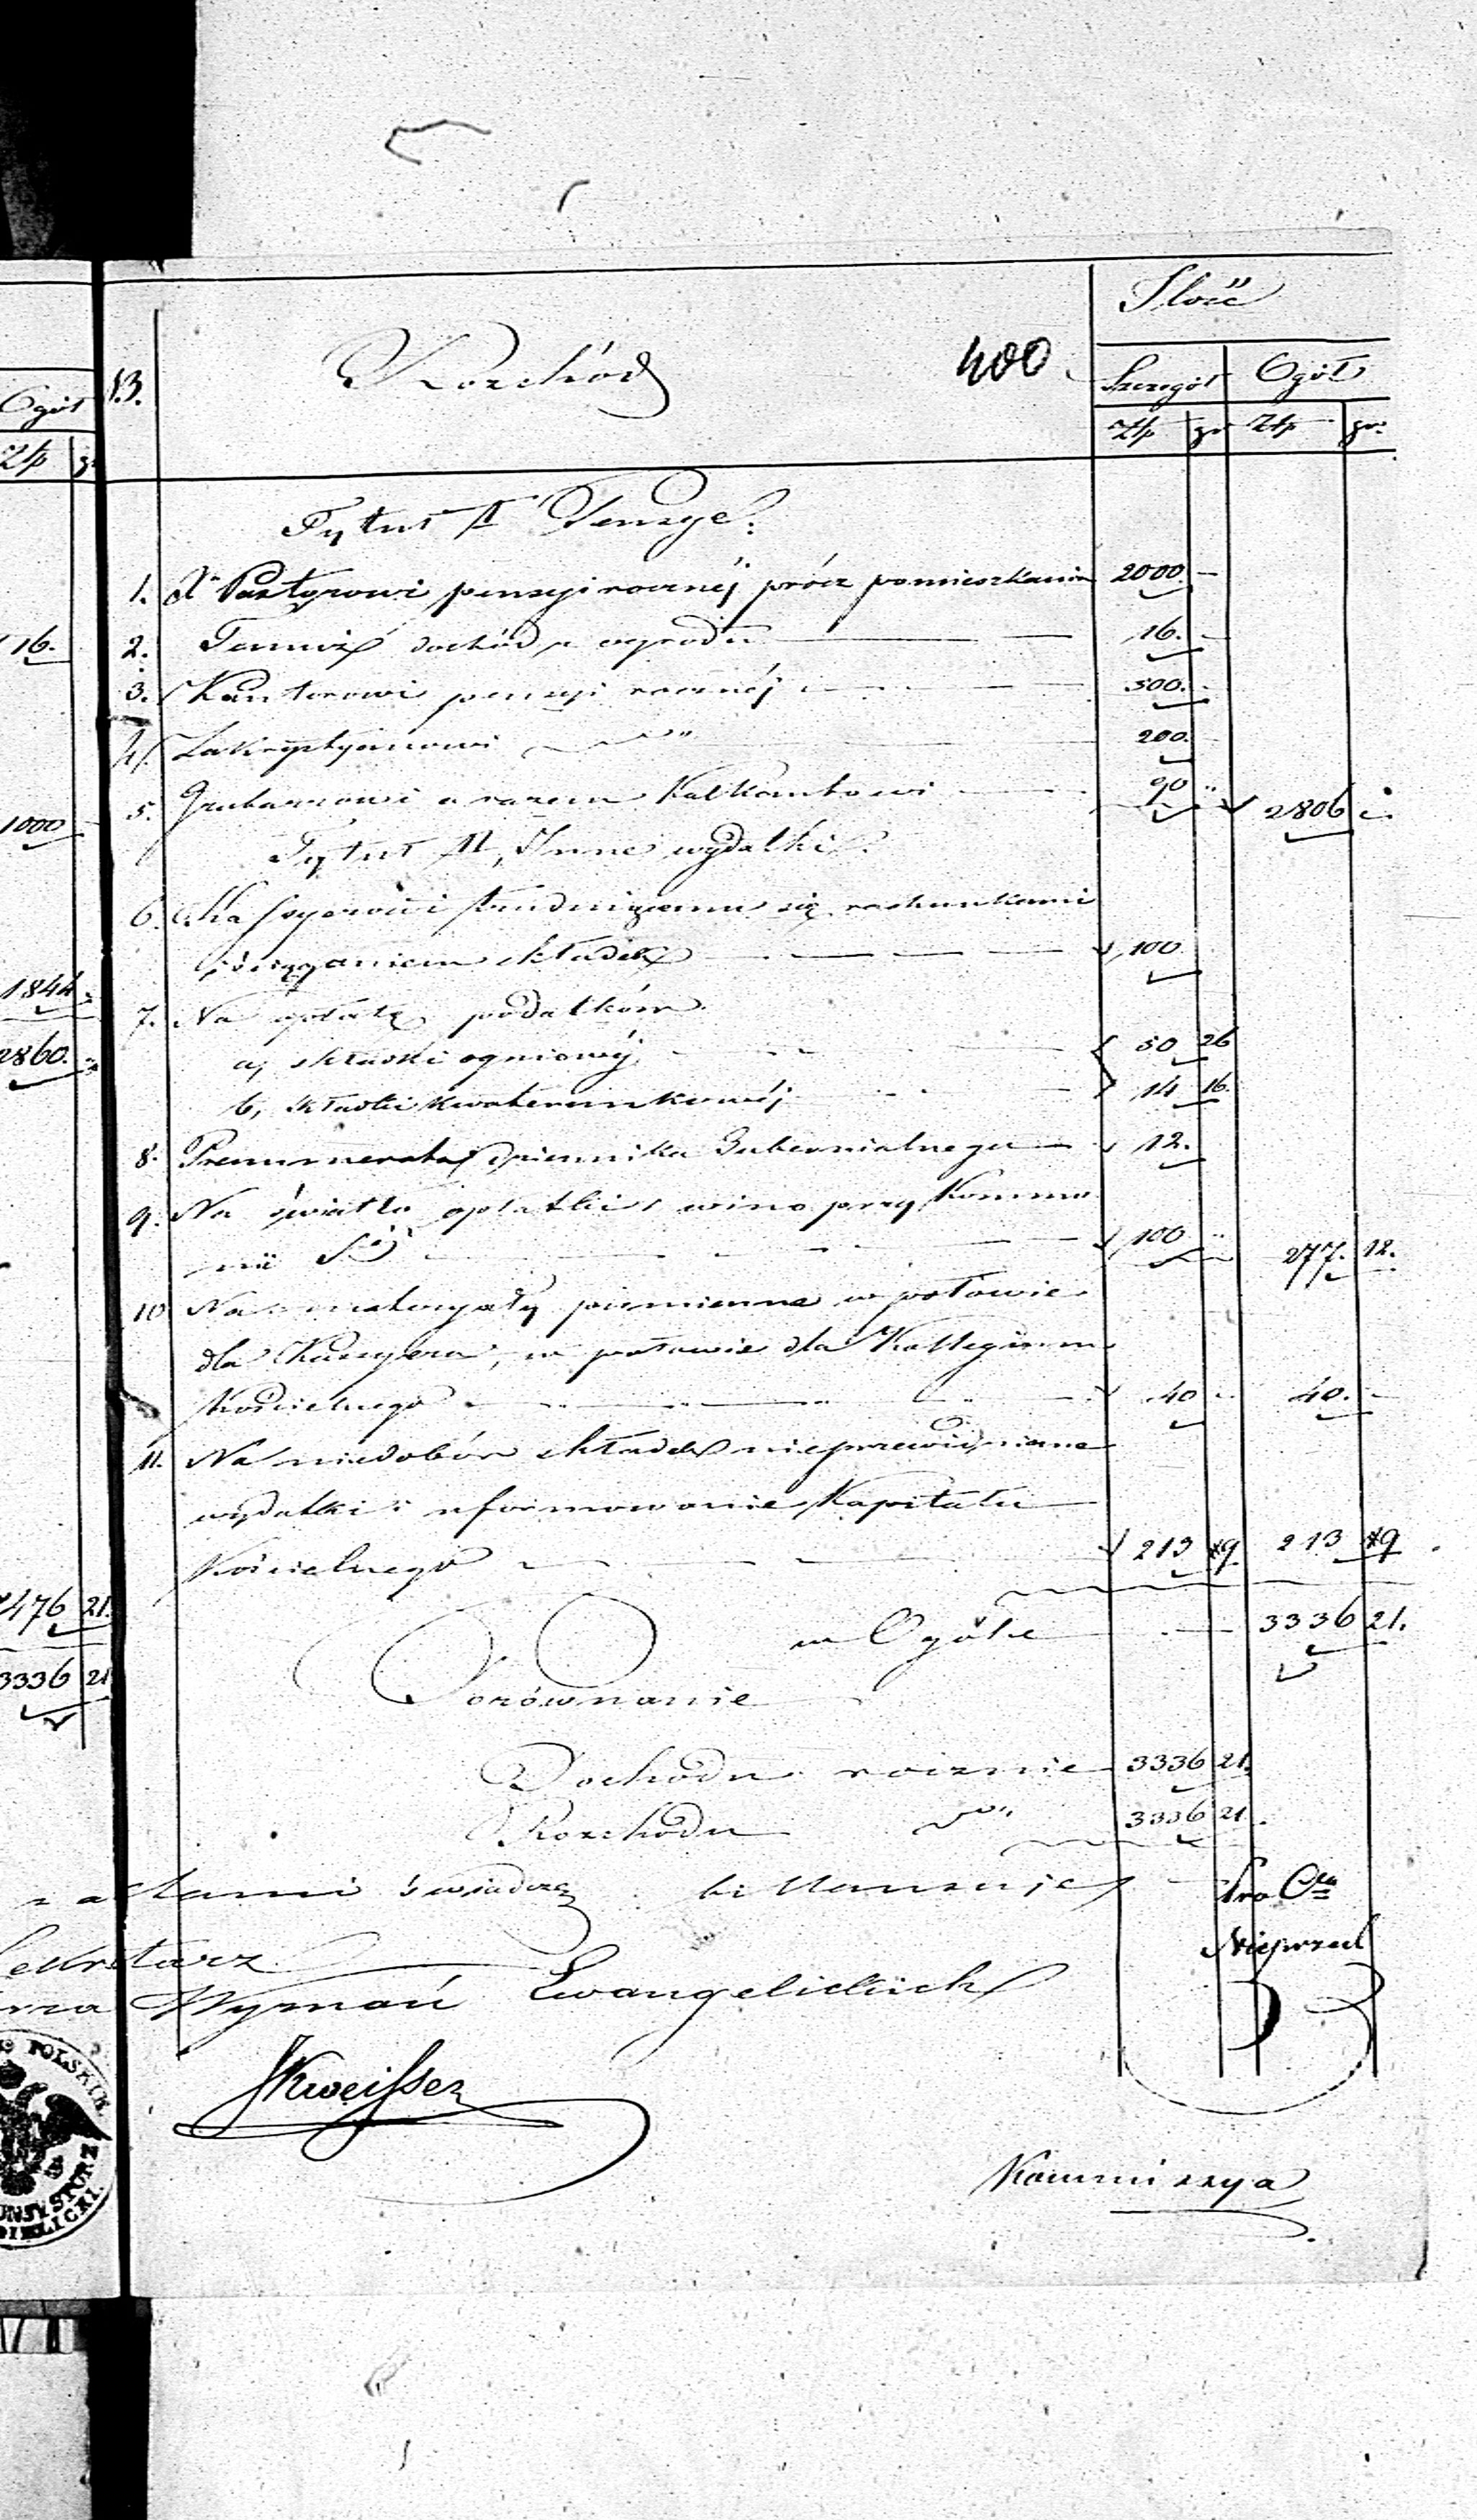 Ilość
13. Rozchód 400
Szczegół Ogół
Ogół
Złp gr Złp gr:
Złp gr
Tytuł I Pensye.
1. X Pastorowi pensyi rocznéj prócz pomieszkania 2000. —
16. 2. Temuż dochód z ogrodu — 16. —
3. Kantorowi pensyi rocznéj — 300. —
4. Zakrystyanowi — 200. —
5. Grabarzowi a razem Kalkantowi — 90 2806
1000
Tytuł II, Inne wydatki.
6. Kassyerowi trudniącemu się rachunkami
i ściąganiem składek — 100
1844
7. Na opłatę podatków
2860. a, składki ogniowéj — 50 26
b, składki kwaterunkowéj — 14 16.
8. Prenumerata Dziennika Gubernialnego — 12.
9. Na światło opłatki i wino przy Kommu
nii S — 100 277. 12.
10 Na materyały piśmienne w połowie
dla Kassyera, w połowie dla Kollegium
Kościelnego — 40 40. —
11. Na niedobór składek nieprzewidziane
wydatki i uformowanie Kapitału
Kościelnego — 213 9. 213 9
476 21. w Ogóle — 3336 21.
3336 21
Porównanie
Dochodu rocznie 3336 21.
Rozchodu 3336 21.
z aktami świadczą bilansuje
Sekretarz
Wyznań Ewangelickich
Kommissya
POLSKIM
KONSYSTORZ